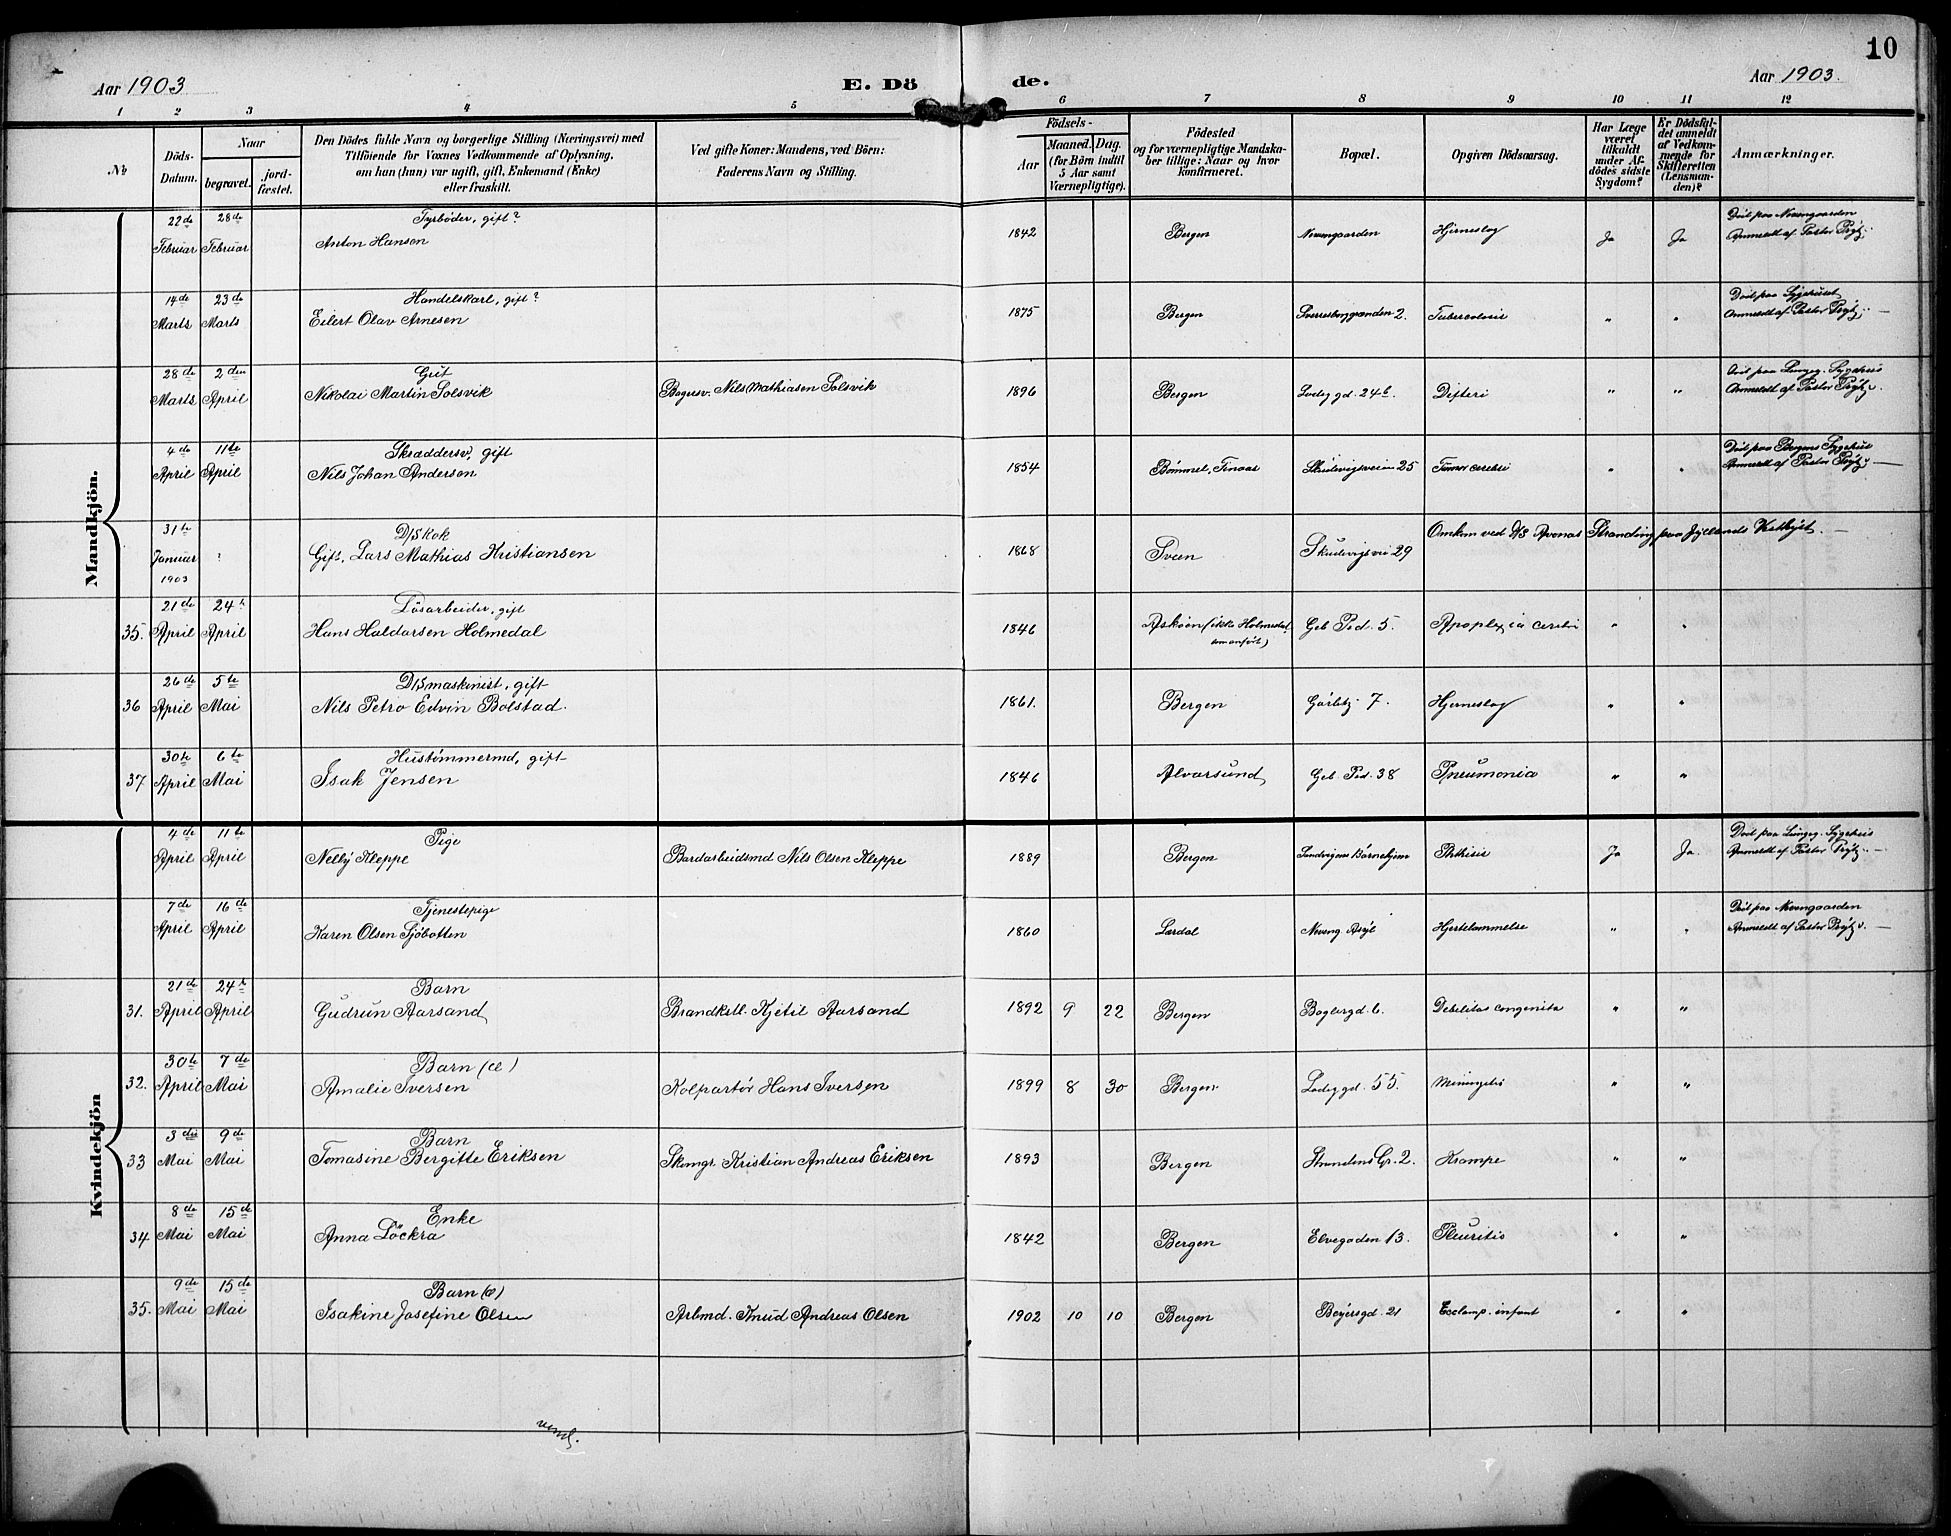 10
Aar 1903
E. Dö de.
Aar 1903.
1 2 3 4 5 6 7 8 9 10 11 12
No
Döds-Datum.
Naar
begravet.
jord-fæstet.
Den Dödes fulde Navn og borgerlige Stilling (Næringsvei) med
Tilföiende for Voxnes Vedkommende af Oplysning,
om han (hun) var ugift, gift, Enkemand (Enke)
eller fraskilt.
Ved gifte Koner: Mandens, ved Börn:
Faderens Navn og Stilling.
Födsels-
Aar
Maaned. Dag.
(for Börn indtil
5 Aar samt
Værnepligtige).
Födested
og for værnepligtige Mandska-
ber tillige: Naar og hvor
konfirmeret.
Bopæl.
Opgiven Dödsaarsag.
Har Læge
været
tilkaldt
under Af-
dödes sidste
Sygdom?
Er Dödsfal-
det anmeldt
af Vedkom-
mende for
Skifteretten
(Lensman-
den)?
Anmærkninger.
Mandkjön.
22de Februar 28de Februar Fyrbøder, gift?
Anton Hansen 1842 Bergen Nevengaarden Hjerneslag Ja Ja Död paa Nevengaarden
Anmeldt af Pastor Prÿtz
14de Marts 23de Marts Handelskarl, gift?
Eilert Olav Arnesen 1875 Bergen Sverresborggranden 2. Tuberculosis " " Död paa Sygehuset
Anmeldt af Pastor Prÿtz
28de Marts 2den April Gut
Nikolai Martin Solsvik Nils Mathiasen Solsvik 1896 Bergen Ladeg gd. 24 Difteri " " Död paa Lungeg. Sygehus
Anmeldt af Pastor Prÿtz
4de April 11te April Skræddersv, gift
Nils Johan Andersen 1854 Bømmel, Finaas Skudevigsveien 25 Tumor cerebri " " Död paa Bergens Sygehus
Anmeldt af Pastor Prÿtz
31te Januar 1903 ? D/S Kok
Gift, Lars Mathias Kristiansen 1868 Svæn Skudevigsvei 29 Omkom ved D/S Avonas Stranding paa Jyllands Vestkyst.
35. 21de April 24 April Løsarbeider, gift
Hans Haldorsen Holmedal 1846 Askøen (ikke Holmedal
som anført) Geb Pod. 5. Apoplexia cerebri " "
36 26de April 5te Mai D/S maskinist, gift
Nils Petro Edvin Bolstad. 1861. Bergen Görbitz 7. Hjerneslag " "
37 30te April 6te Mai Hustømmermd, gift
Isak Jensen 1846 Alvorsund Geb. Pod. 38 Pneumonia " "
Kvindekjön
4de April 11te April Pige
Nelly Kleppe Nils Olsen Kleppe 1889 Bergen Sandvigens Børnehjem Phthisis Ja Ja. Död paa Lungeg. Sygehus
Anmeldt af Pastor Prÿtz
7de April 16de April Tjenestepige
Karen Olsen Sjöbotten 1860 Lærdal Neveng. Asyl Hjertelammelse " " Död paa Nevengaarden
Anmeldt af Pastor Prÿtz
31. 21de April 24 April Barn
Gudrun Aarsand Brandkstl. Kjetil Aarsand 1892 9 22 Bergen Baglergd. 6. Debilitas congenita " "
32. 30te April 7de Mai Barn
Amalie Iversen Kolpartör Hans Iversen 1899 8 30 Bergen Ladeggd. 55. Meningitis " "
33 3die Mai 9de Mai Barn
Tomasine Bergitte Eriksen Skomgr. Kristian Andreas Eriksen 1893 Bergen Strandens Gr. 2. Krampe " "
34 8de Mai 15de Mai Enke
Anna Löckra 1842 Bergen Elvegaden 13. Pleuritis " "
35. 9de Mai 15de Mai Barn
Isakine Josefine Olsen Arbmd. Knud Andreas Olsen 1902 10 10 Bergen Beyersgd. 21 Eclamp. infant " "
vend.